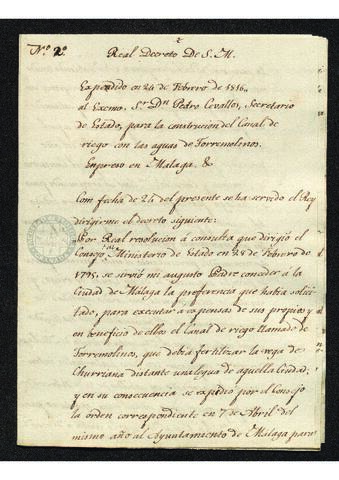 Nº 2º Real Decreto De S. M.
Expedido en 24 de Febrero de 1816.
al Excmo. Sr. Dn. Pedro Cevallos, Secretario
de Estado, para la construcion del Canal de
riego con las aguas de Torremolinos.
Enpreso en Malaga. &
Com fecha de 24 del presente se ha servido el Rey
dirigirme el decreto siguiente:
Por Real resolucion á consulta que dirigió el
Consejo Ministerio de Estado en 28 de Febrero de
1795: se sirvió mi augusto Padre conceder á la
Ciudad de Málaga la preferencia que habia solici-
tado, para executar á expensas de sus propios y
en beneficio de ellos el Canal de riego llamado de
Torremolinos, que debia fertilizar la vega de
Churriana distante una legua de aquella Ciudad;
y en su consecuencia se expidio por el Consejo
la orden correspondiente en 7 de Abril del
mismo año al Ayuntamiento de Málaga para